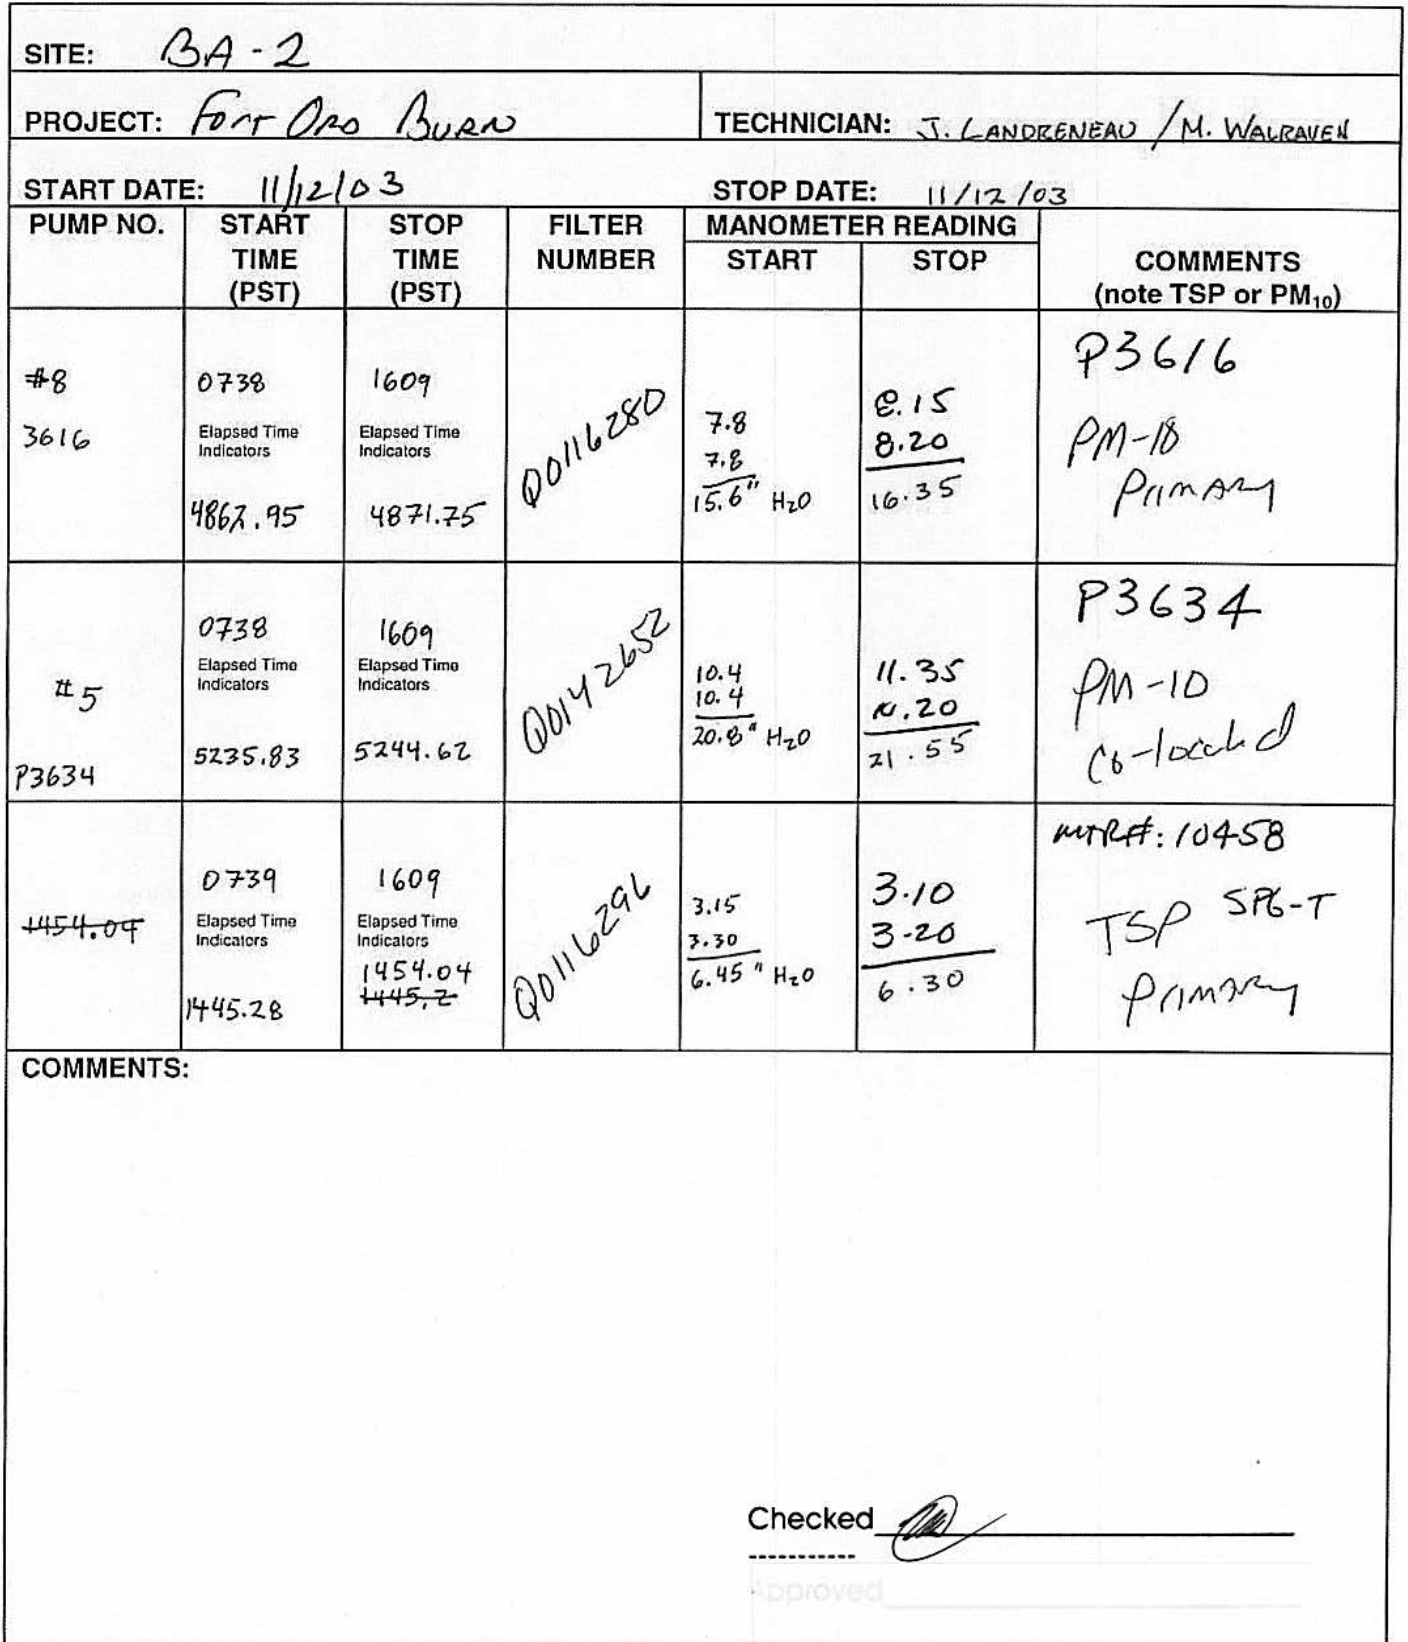 SITE: BA-2
PROJECT: Fort Ord Burn TECHNICIAN: J. LANDRENEAU / M. WALRAVEN
START DATE: 11/12/03 STOP DATE: 11/12/03
PUMP NO. START TIME (PST) STOP TIME (PST) FILTER NUMBER MANOMETER READING START STOP COMMENTS (note TSP or PM10)
#8
3616
0738
Elapsed Time
Indicators
4862.95
1609
Elapsed Time
Indicators
4871.75
Q0116280
7.8
7.8
15.6" H2O
8.15
8.20
16.35
P3616
PM-10
Primary
#5
P3634
0738
Elapsed Time
Indicators
5235.83
1609
Elapsed Time
Indicators
5244.62
Q0142652
10.4
10.4
20.8" H2O
11.35
10.20
21.55
P3634
PM-10
Co-located
1454.04
0739
Elapsed Time
Indicators
1445.28
1609
Elapsed Time
Indicators
1454.04
1445.2
Q0116296
3.15
3.30
6.45" H2O
3.10
3.20
6.30
MTR#: 10458
TSP SP6-T
Primary
COMMENTS:
Checked
Approved